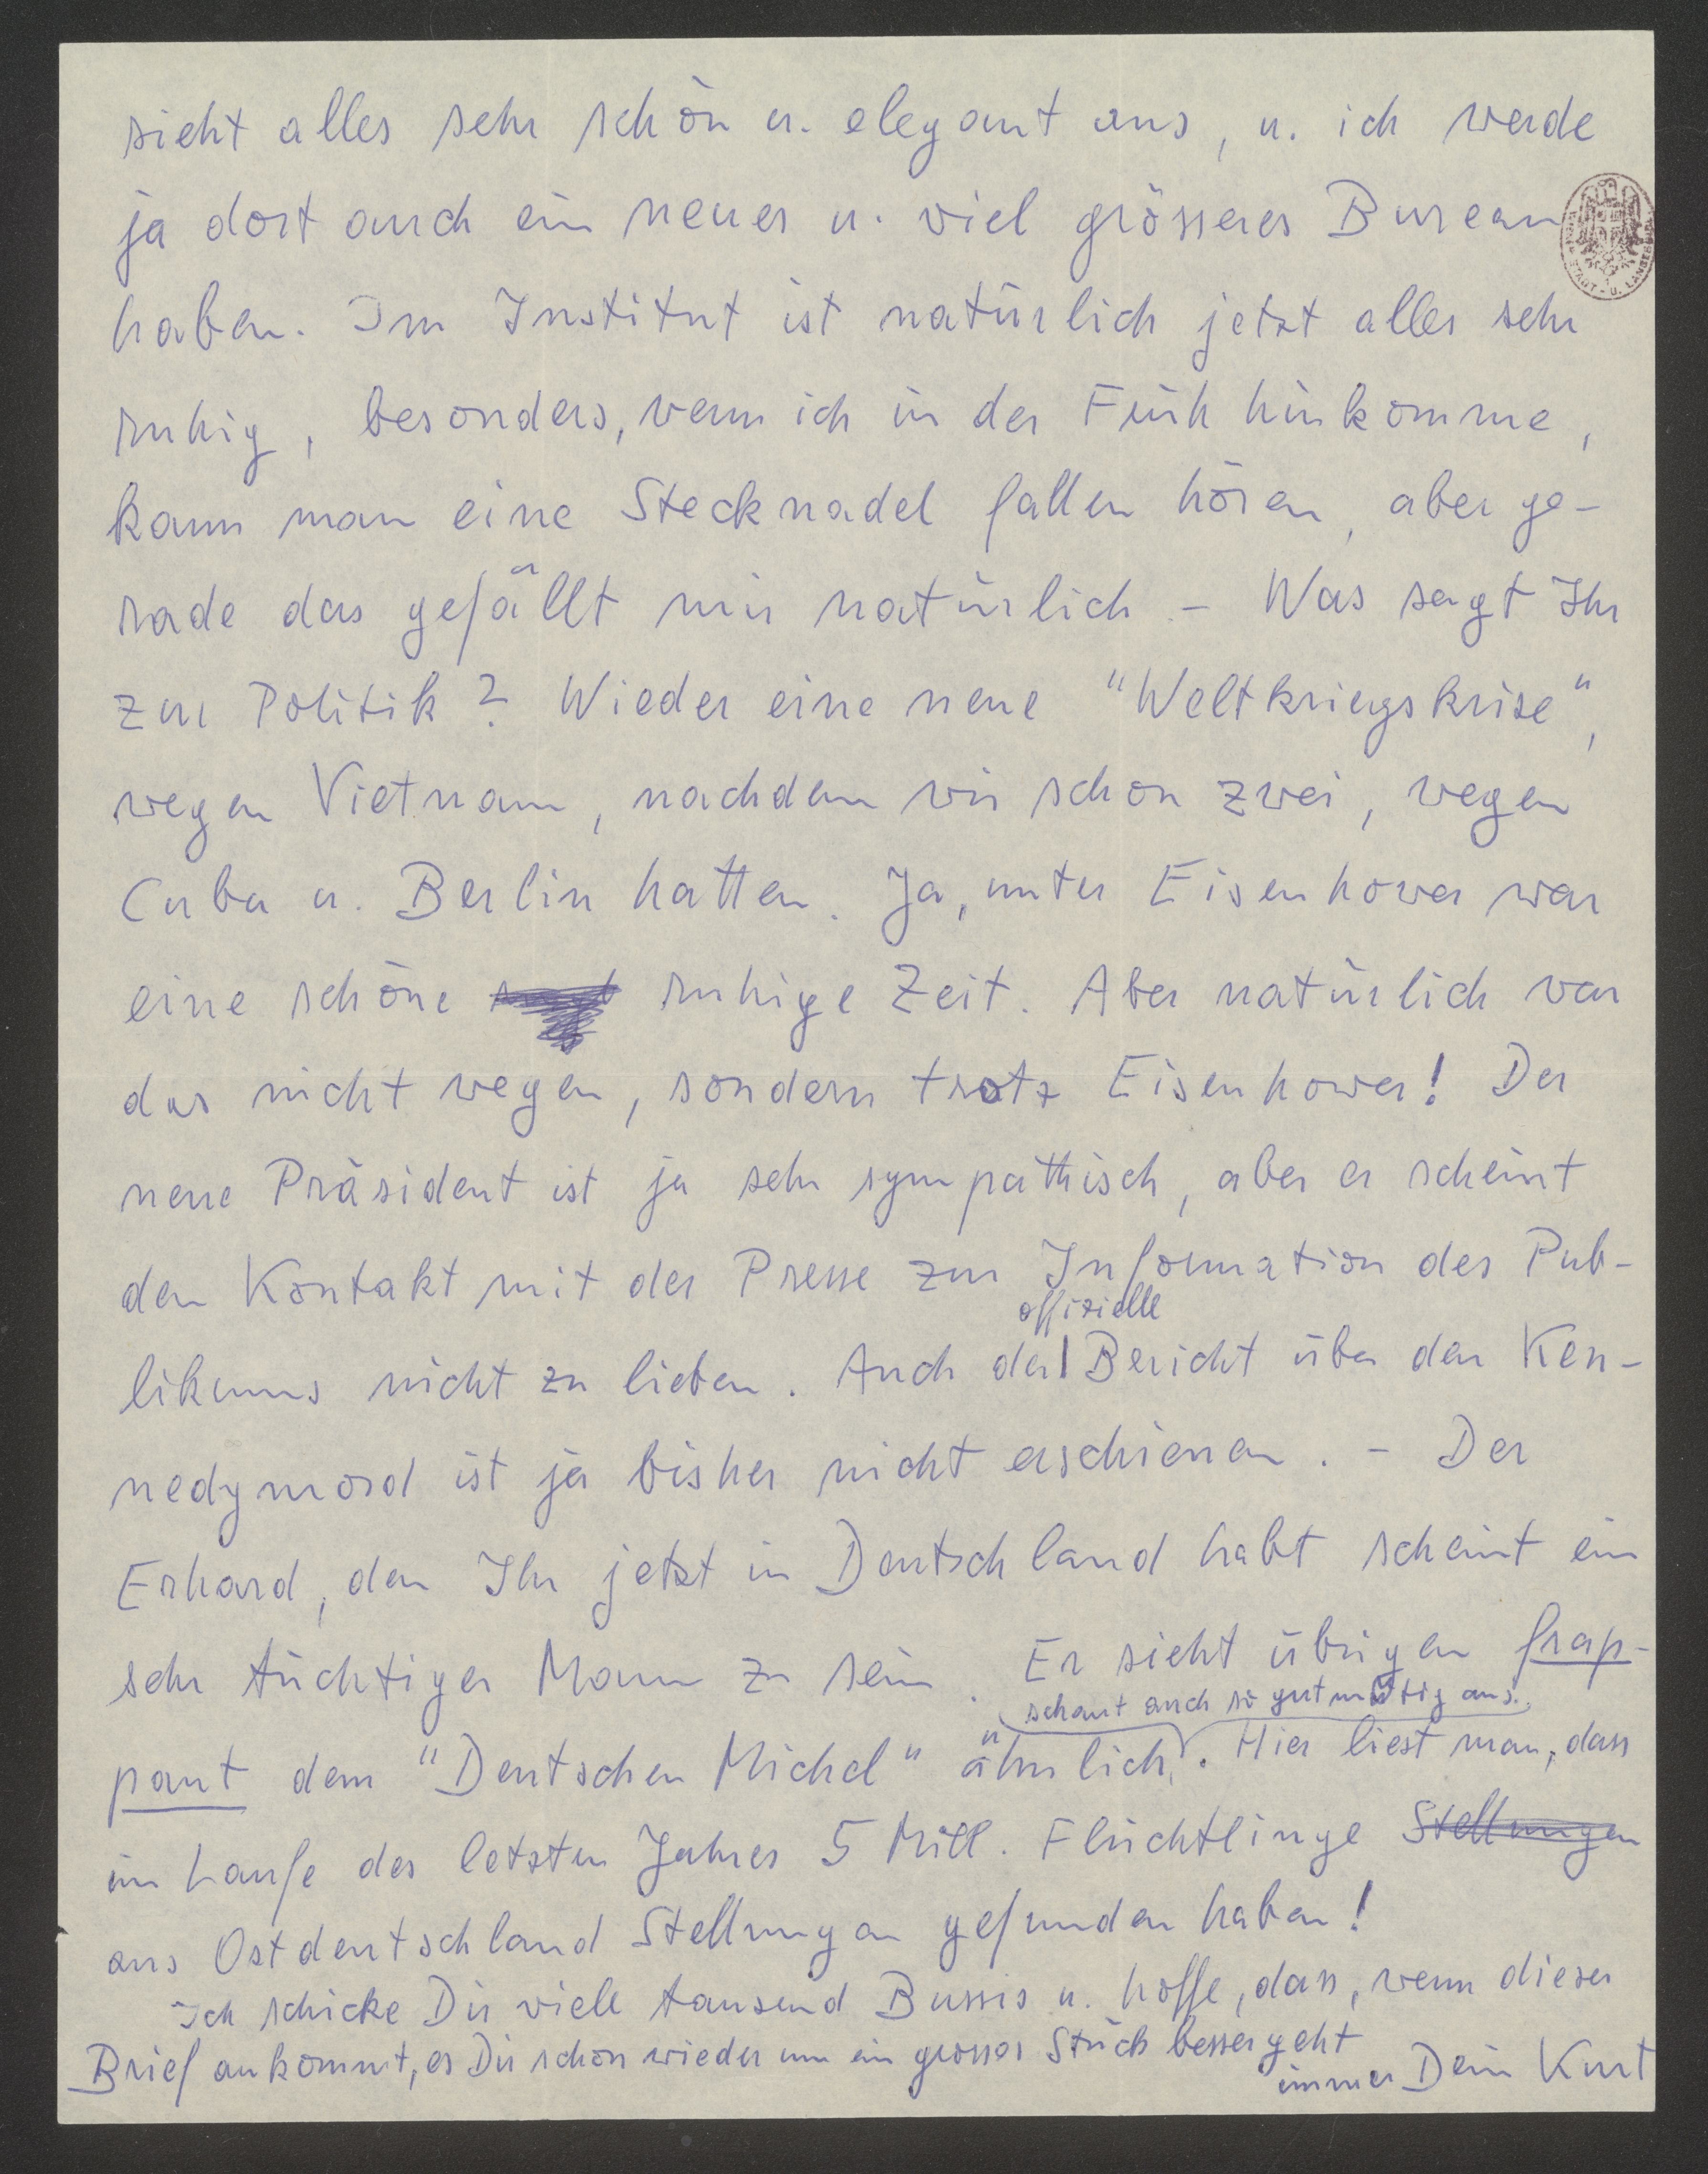 sieht alles sehr schön u. elegant aus, u. ich werde
ja dort auch ein neues u. viel grösseres Bureau
haben. Im Institut ist natürlich jetzt alles sehr
ruhig, besonders, wenn ich in der Früh hinkomme,
kann man eine Stecknadel fallen hören, aber ge-
rade das gefällt mir natürlich. – Was sagt Ihr
zur Politik? Wieder eine neue "Weltkriegskrise",
wegen Vietnam, nachdem wir schon zwei, wegen
Cuba u. Berlin hatten. Ja, unter Eisenhower war
eine schöne ruhige Zeit. Aber natürlich war
das nicht wegen, sondern trotz Eisenhower! Der
neue Präsident ist ja sehr sympathisch, aber er scheint
den Kontakt mit der Presse zur Information des Pub-
offizielle
likums nicht zu lieben. Auch der Bericht über den Ken-
nedymord ist ja bisher nicht erschienen. – Der
Erhard, den Ihr jetzt in Deutschland habt scheint ein
sehr tüchtiger Mann zu sein. Er sieht übrigen frap-
schaut auch so gutmütig aus.
pant dem "Deutschen Michel" ähnlich. Hier liest man, dass
im Laufe des letzten Jahres 5 Mill. Flüchtlinge Stellungen
aus Ostdeutschland Stellungen gefunden haben!
Ich schicke Dir viele tausend Bussis u. hoffe, dass, wenn dieser
Brief ankommt, es Dir schon wieder um ein grosses Stück besser geht
immer Dein Kurt